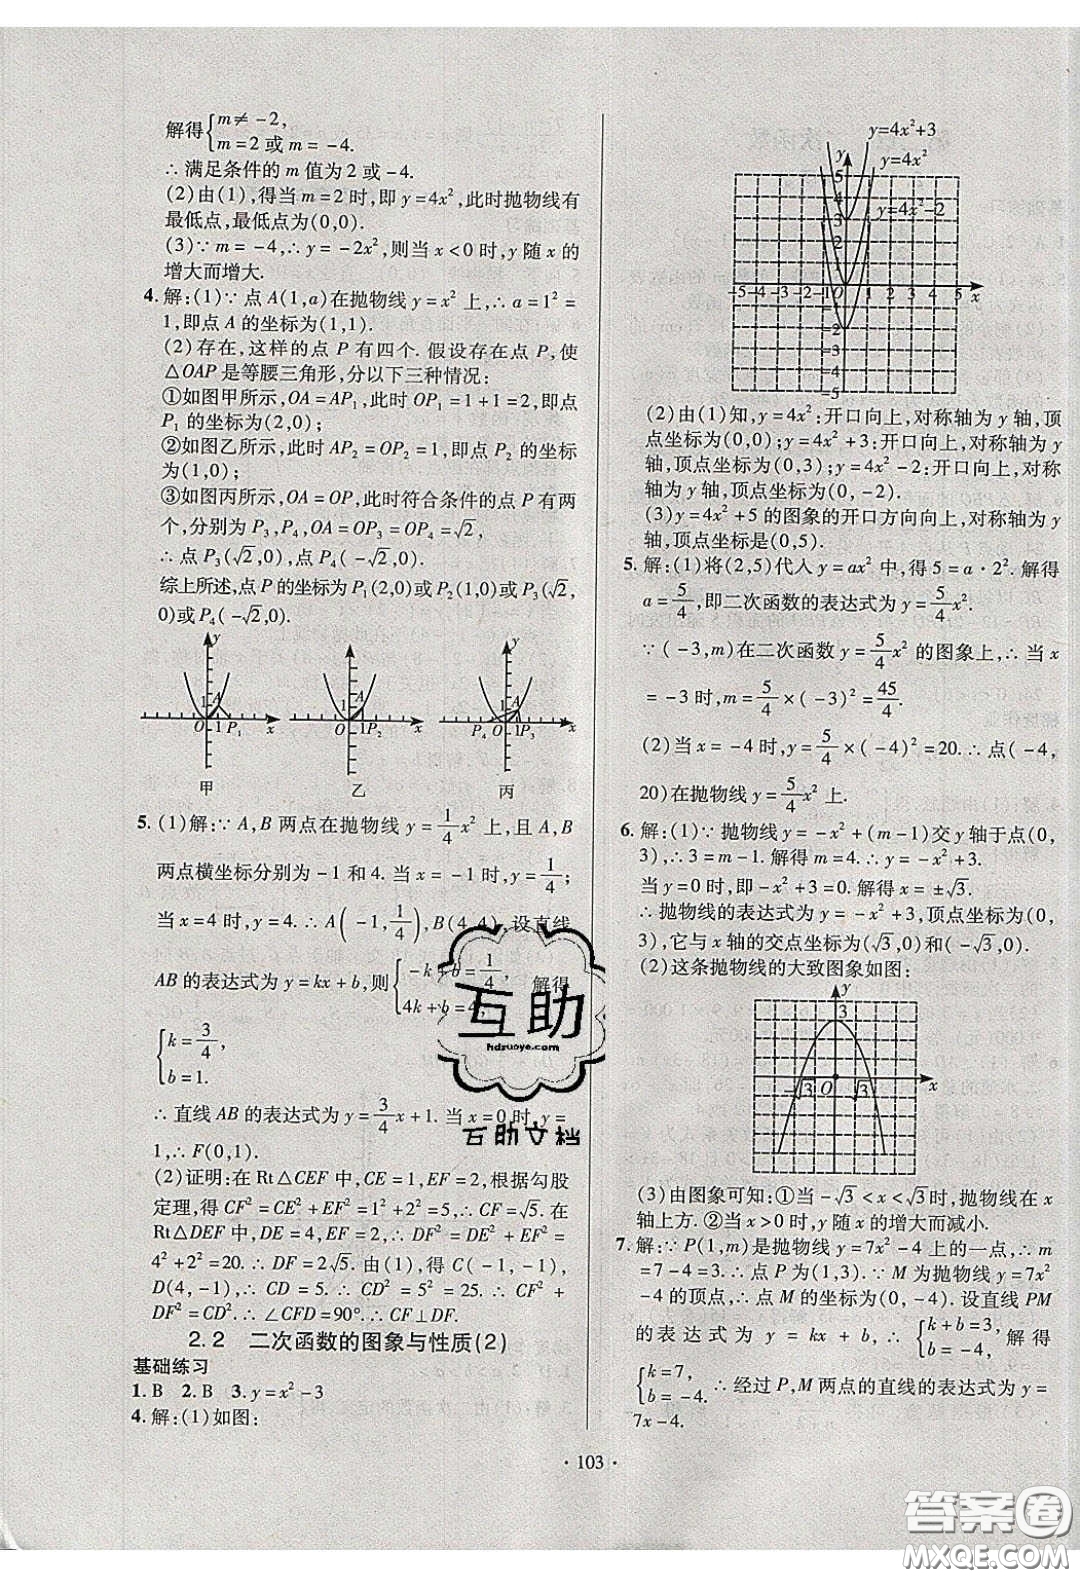 解得{m≠-2,
m=2或m=-4.
∴满足条件的m值为2或-4.
(2)由(1),得当m=2时,即y=4x²,此时抛物线有
最低点,最低点为(0,0).
(3)∵m=-4,∴y=-2x²,则当x<0时,y随x的
增大而增大.
4.解:(1)∵点A(1,a)在抛物线y=x²上,∴a=1²=
1,即点A的坐标为(1,1).
(2)存在,这样的点P有四个.假设存在点P,使
△OAP是等腰三角形,分以下三种情况:
①如图甲所示,OA=AP₁,此时OP₁=1+1=2,即点
P₁的坐标为(2,0);
②如图乙所示,此时AP₂=OP₂=1,即点P₂的坐标
为(1,0);
③如图丙所示,OA=OP,此时符合条件的点P有两
个,分别为P₃,P₄,OA=OP₃=OP₄=√2,
∴点P₃(√2,0),点P₄(-√2,0).
综上所述,点P的坐标为P₁(2,0)或P₂(1,0)或P₃(√2,
0)或P₄(-√2,0).
y y y
1 A 1 A 1 A
O 1 P₁ x O P₂ x P₄ O 1 P₃ x
甲 乙 丙
5.(1)解:∵A,B两点在抛物线y=1/4x²上,且A,B
两点横坐标分别为-1和4.当x=-1时,y=1/4;
当x=4时,y=4.∴A(-1,1/4),B(4,4),设直线
AB的表达式为y=kx+b,则{-k+b=1/4, 4k+b=4, 解得
{k=3/4,
b=1.
∴直线AB的表达式为y=3/4x+1.当x=0时,y=
1,∴F(0,1).
(2)证明:在Rt△CEF中,CE=1,EF=2,根据勾股
定理,得CF²=CE²+EF²=1²+2²=5,∴CF=√5.在
Rt△DEF中,DE=4,EF=2,∴DF²=DE²+EF²=
4²+2²=20.∴DF=2√5.由(1),得C(-1,-1),
D(4,-1),∴CD=5.∴CD²=5²=25.∴CF²+
DF²=CD².∴∠CFD=90°.∴CF⊥DF.
2.2 二次函数的图象与性质(2)
基础练习
1.B 2.B 3.y=x²-3
4.解:(1)如图:
y=4x²+3
y=4x²
y=4x²-2
y
5
4
3
2
1
-5 -4 -3 -2 -1 O 1 2 3 4 5 x
-1
-2
-3
-4
-5
(2)由(1)知,y=4x²:开口向上,对称轴为y轴,顶
点坐标为(0,0);y=4x²+3:开口向上,对称轴为y
轴,顶点坐标为(0,3);y=4x²-2:开口向上,对称
轴为y轴,顶点坐标为(0,-2).
(3)y=4x²+5的图象的开口方向向上,对称轴为y
轴,顶点坐标是(0,5).
5.解:(1)将(2,5)代入y=ax²中,得5=a·2².解得
a=5/4,即二次函数的表达式为y=5/4x².
∵(-3,m)在二次函数y=5/4x²的图象上,∴当x
=-3时,m=5/4×(-3)²=45/4.
(2)当x=-4时,y=5/4×(-4)²=20.∴点(-4,
20)在抛物线y=5/4x²上.
6.解:(1)∵抛物线y=-x²+(m-1)交y轴于点(0,
3),∴3=m-1.解得m=4.∴y=-x²+3.
当y=0时,即-x²+3=0.解得x=±√3.
∴抛物线的表达式为y=-x²+3,顶点坐标为(0,
3),它与x轴的交点坐标为(√3,0)和(-√3,0).
(2)这条抛物线的大致图象如图:
y
3
-√3 O √3 x
(3)由图象可知:①当-√3<x<√3时,抛物线在x
轴上方.②当x>0时,y随x的增大而减小.
7.解:∵P(1,m)是抛物线y=7x²-4上的一点,∴m
=7-4=3.∴点P为(1,3).∵M为抛物线y=7x²
-4的顶点,∴点M的坐标为(0,-4).设直线PM
的表达式为y=kx+b,则{k+b=3, b=-4, 解得
{k=7, b=-4. ∴经过P,M两点的直线的表达式为y=
7x-4.
·103·
互助
hdzuoye.com
互助文档
答案圈
MXQE.COM